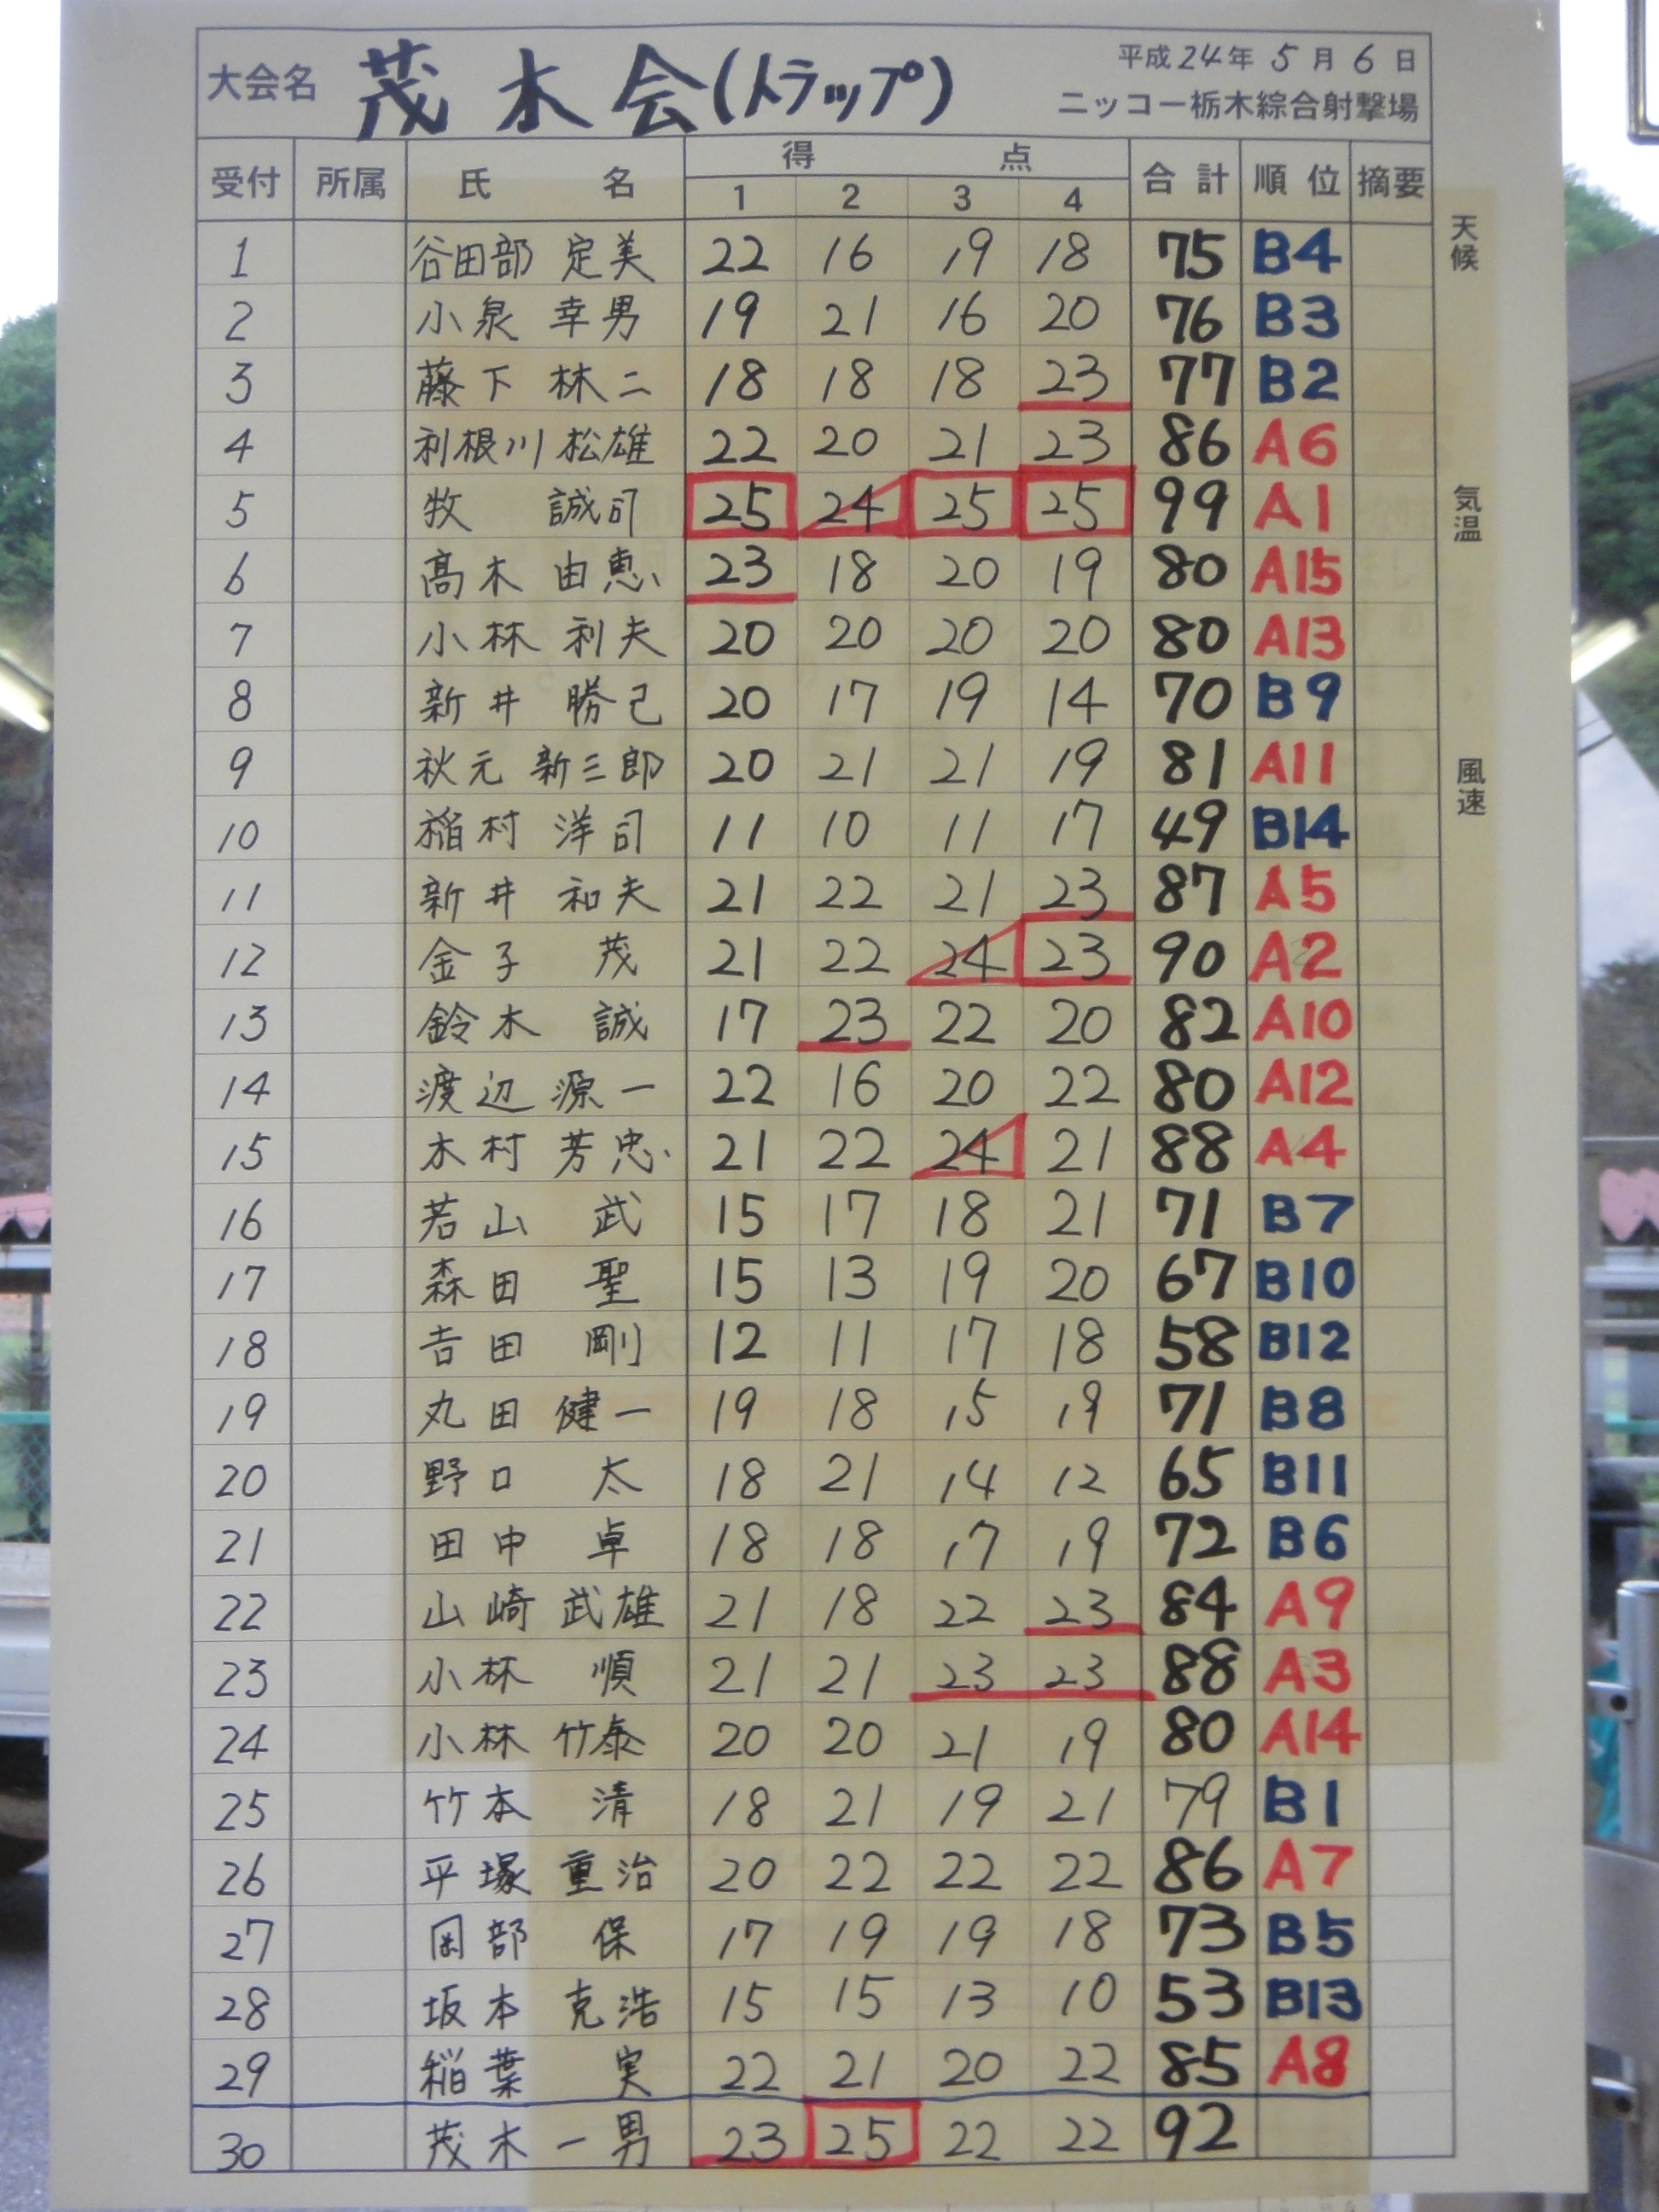 大会名 茂木会(トラップ) 平成24年5月6日
ニッコー栃木綜合射撃場
受付 所属 氏名 得点 合計 順位 摘要
1 2 3 4
1 谷田部 定美 22 16 19 18 75 B4
2 小泉 幸男 19 21 16 20 76 B3
3 藤下 林二 18 18 18 23 77 B2
4 利根川 松雄 22 20 21 23 86 A6
5 牧 誠司 25 24 25 25 99 A1
6 髙木 由恵 23 18 20 19 80 A15
7 小林 利夫 20 20 20 20 80 A13
8 新井 勝己 20 17 19 14 70 B9
9 秋元 新三郎 20 21 21 19 81 A11
10 稲村 洋司 11 10 11 17 49 B14
11 新井 和夫 21 22 21 23 87 A5
12 金子 茂 21 22 24 23 90 A2
13 鈴木 誠 17 23 22 20 82 A10
14 渡辺 源一 22 16 20 22 80 A12
15 木村 芳忠 21 22 24 21 88 A4
16 若山 武 15 17 18 21 71 B7
17 森田 聖 15 13 19 20 67 B10
18 吉田 剛 12 11 17 18 58 B12
19 丸田 健一 19 18 15 19 71 B8
20 野口 太 18 21 14 12 65 B11
21 田中 卓 18 18 17 19 72 B6
22 山崎 武雄 21 18 22 23 84 A9
23 小林 順 21 21 23 23 88 A3
24 小林 竹泰 20 20 21 19 80 A14
25 竹本 清 18 21 19 21 79 B1
26 平塚 重治 20 22 22 22 86 A7
27 岡部 保 17 19 19 18 73 B5
28 坂本 克浩 15 15 13 10 53 B13
29 稲葉 実 22 21 20 22 85 A8
30 茂木 一男 23 25 22 22 92
天候
気温
風速